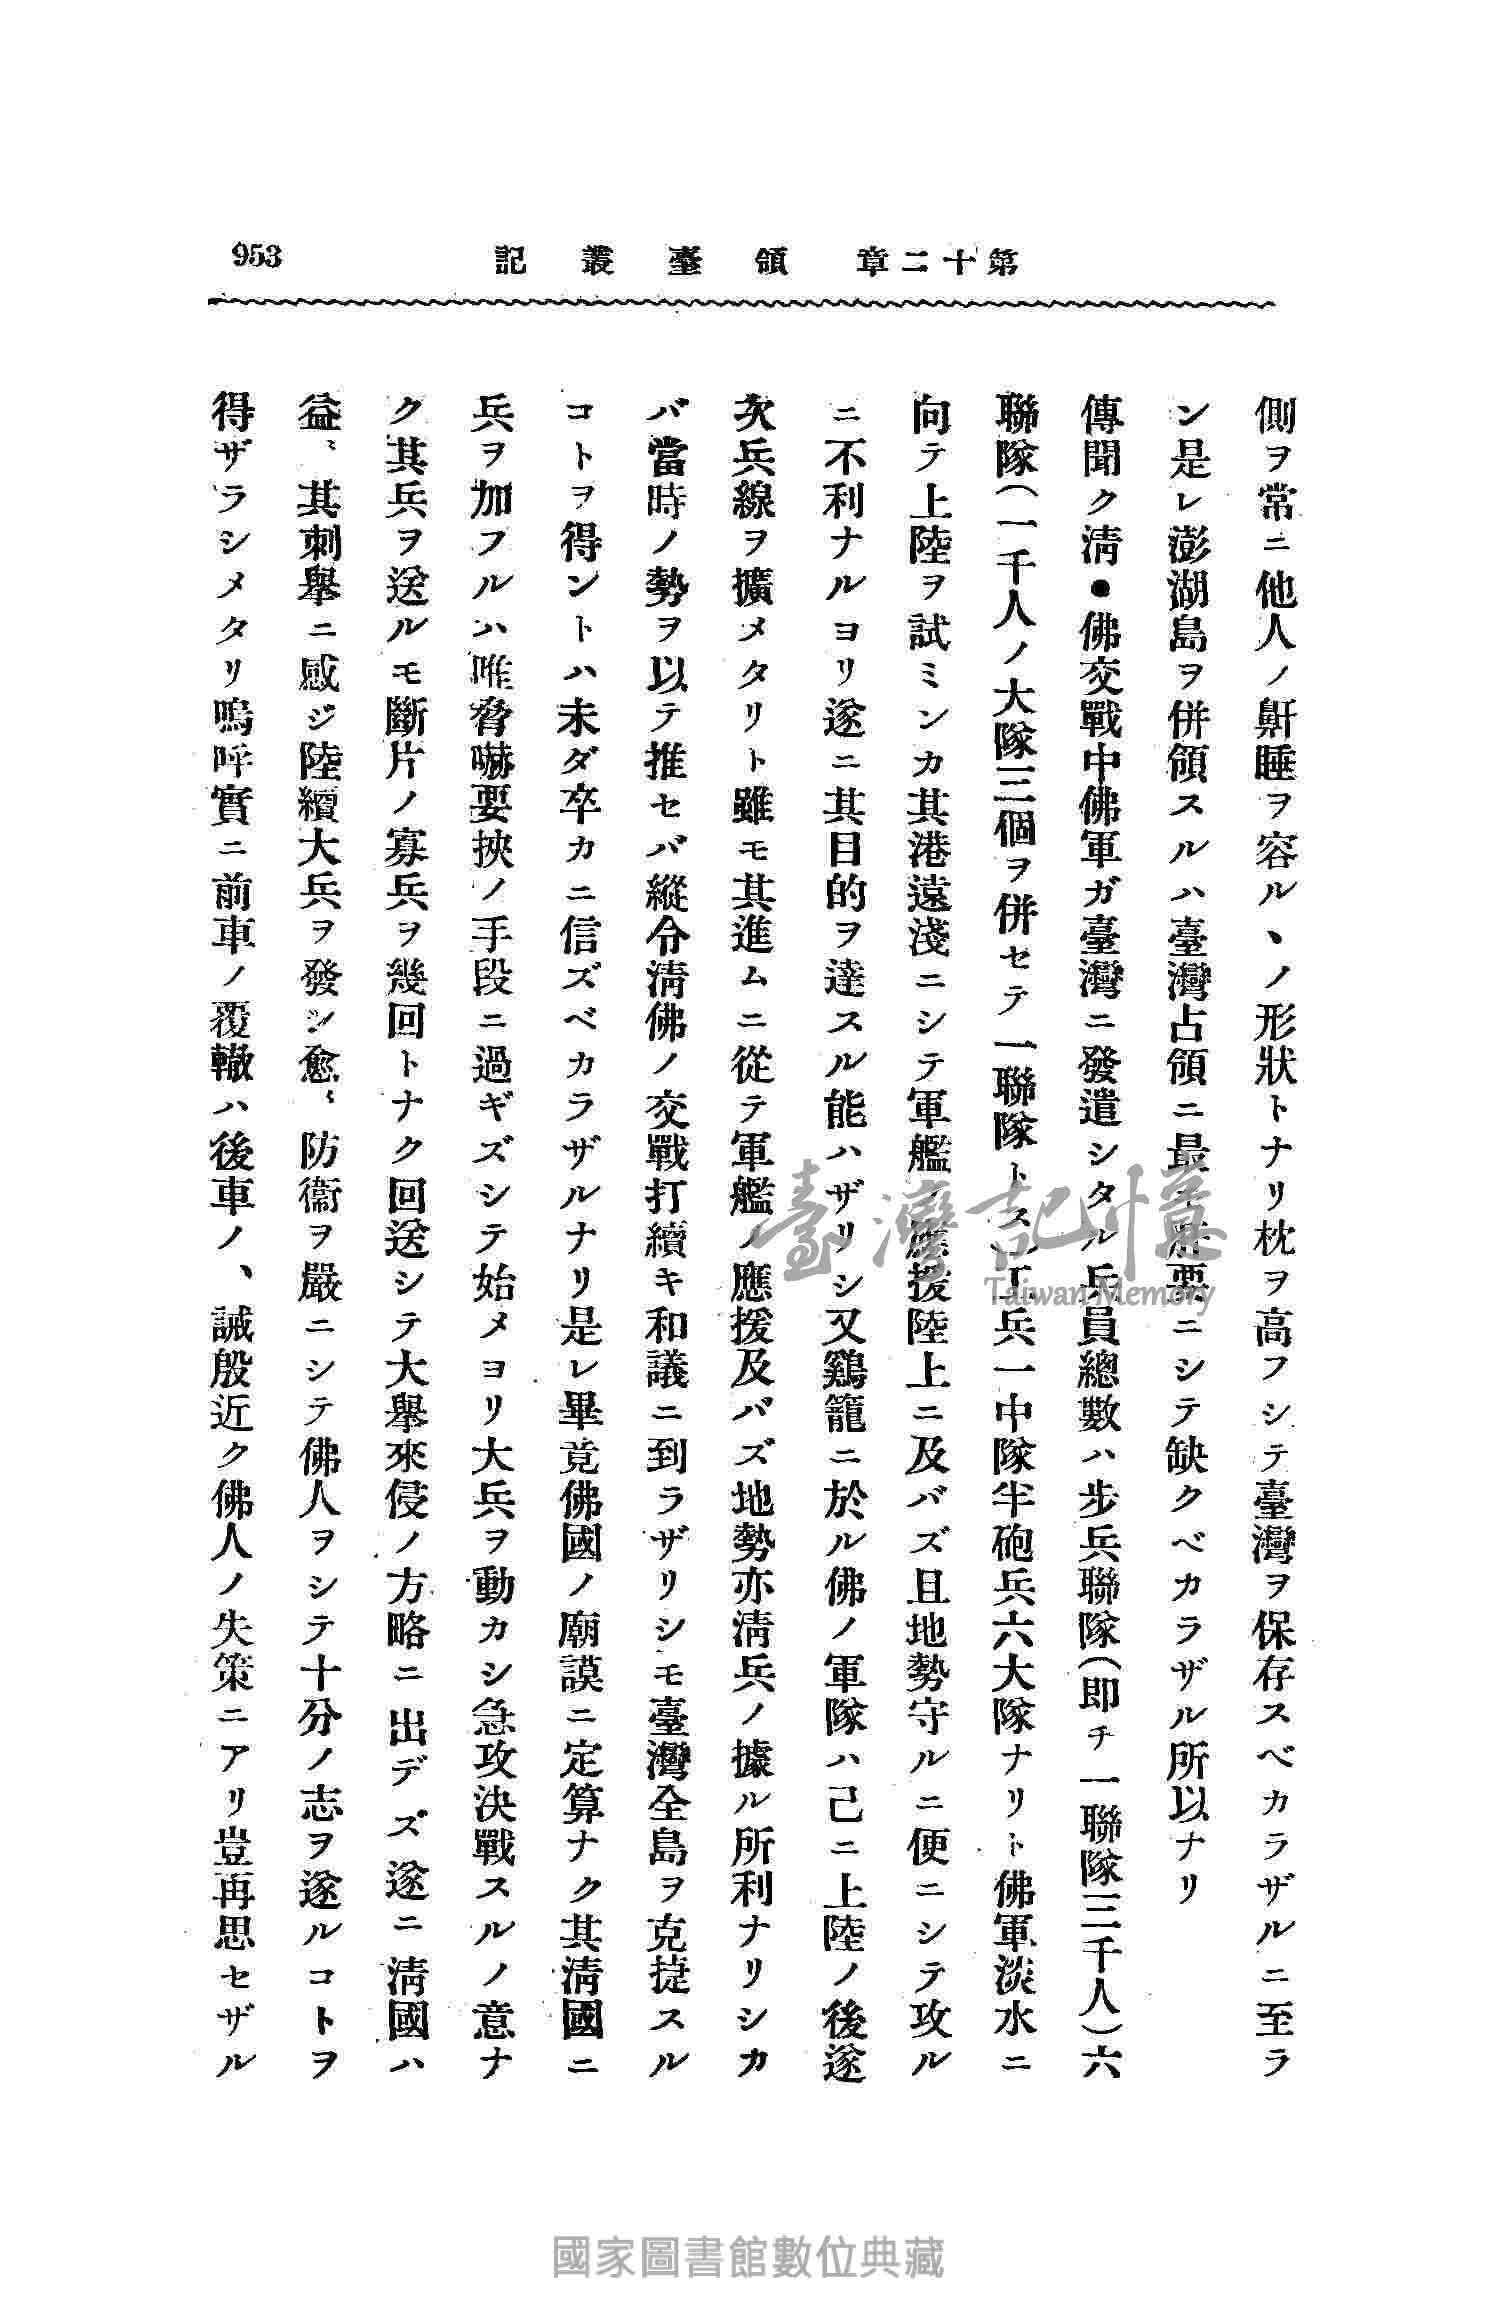 第十二章 領臺叢記 953
側ヲ常ニ他人ノ鼾睡ヲ容ルヽノ形狀トナリ枕ヲ高フシテ臺灣ヲ保存スベカラザルニ至ラ
ン是レ澎湖島ヲ併領スルハ臺灣占領ニ最モ肝要ニシテ缺クベカラザル所以ナリ
傳聞ク淸●佛交戰中佛軍ガ臺灣ニ發遣シタル兵員總數ハ步兵聯隊(卽チ一聯隊三千人)六
聯隊(一千人ノ大隊三個ヲ併セテ一聯隊トス)工兵一中隊半砲兵六大隊ナリト佛軍淡水ニ
向テ上陸ヲ試ミンカ其港遠淺ニシテ軍艦ノ應援陸上ニ及バズ且地勢守ルニ便ニシテ攻ル
ニ不利ナルヨリ遂ニ其目的ヲ達スル能ハザリシ又鷄籠ニ於ル佛ノ軍隊ハ己ニ上陸ノ後遂
次兵線ヲ擴メタリト雖モ其進ムニ從テ軍艦ノ應援及バズ地勢亦淸兵ノ據ル所利ナリシカ
バ當時ノ勢ヲ以テ推セバ縱令淸佛ノ交戰打續キ和議ニ到ラザリシモ臺灣全島ヲ克捷スル
コトヲ得ントハ未ダ卒カニ信ズベカラザルナリ是レ畢竟佛國ノ廟謨ニ定算ナク其淸國ニ
兵ヲ加フルハ唯脅嚇要挾ノ手段ニ過ギズシテ始メヨリ大兵ヲ動カシ急攻決戰スルノ意ナ
ク其兵ヲ送ルモ斷片ノ寡兵ヲ幾回トナク回送シテ大擧來侵ノ方略ニ出デズ遂ニ淸國ハ
益〻其刺擧ニ感ジ陸續大兵ヲ發シ愈〻防衞ヲ嚴ニシテ佛人ヲシテ十分ノ志ヲ遂ルコトヲ
得ザラシメタリ嗚呼實ニ前車ノ覆轍ハ後車ノ、誡殷近ク佛人ノ失策ニアリ豈再思セザル
臺灣記憶
Taiwan Memory
國家圖書館數位典藏